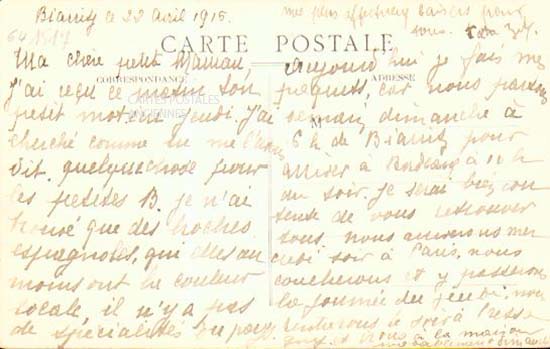 Biarritz le 22 Avril 1915.
CARTE POSTALE
CORRESPONDANCE
ADRESSE
CARTES POSTALES
ANCIENNES
Ma chère petite Maman,
J'ai reçu ce matin ton
petit mot de jeudi. J'ai
cherché comme tu me l'avais
dit quelque chose pour
les petites B. je n'ai
trouvé que des broches
espagnoles, qui elles au
moins ont la couleur
locale, il n'y a pas
de spécialités du pays.
Aujourd'hui je fais mes
paquets, car nous partons
demain dimanche à
6 h de Biarritz pour
arriver à Bordeaux à 10 h
du soir. Je serai bien con
tente de vous retrouver
tous. nous arriverons mer
credi soir à Paris, nous
coucherons et y passerons
la journée du jeudi, nous
rentrerons le soir à
à la maison
mes plus affectueux baisers pour
tous.